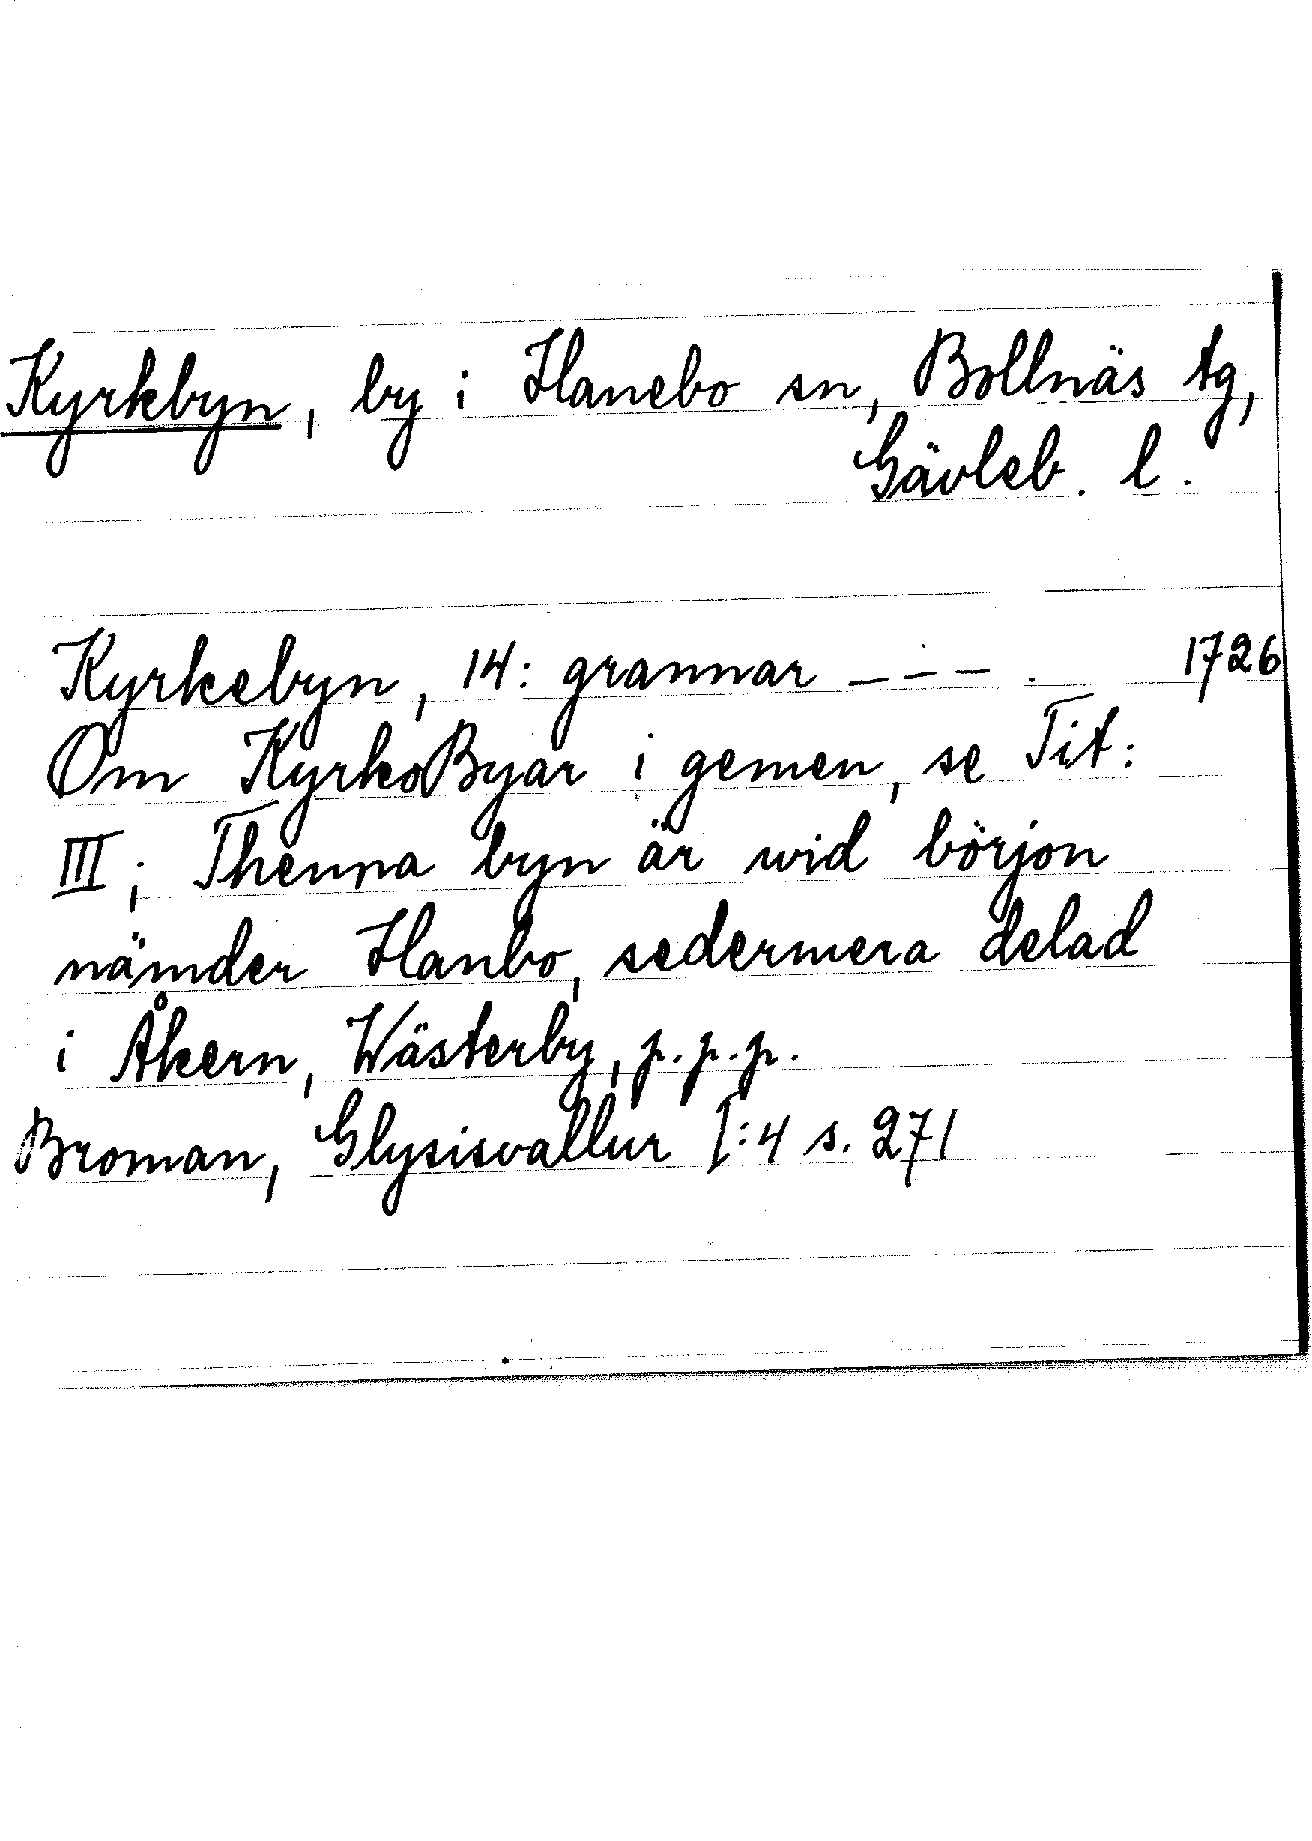 Kyrkbyn, by i Hanebo sn, Bollnäs tg,
Gävleb. l.
Kyrkebyn, 14: grannar _ _ _ . 1726
Om KyrkoByar i gemen, se Tit:
III; Thenna byn är wid börjon
nämder Hanbo, sedermera delad
i Åkern, Wästerby, p.p.p.
Broman, Glysisvallur I:4 s. 271